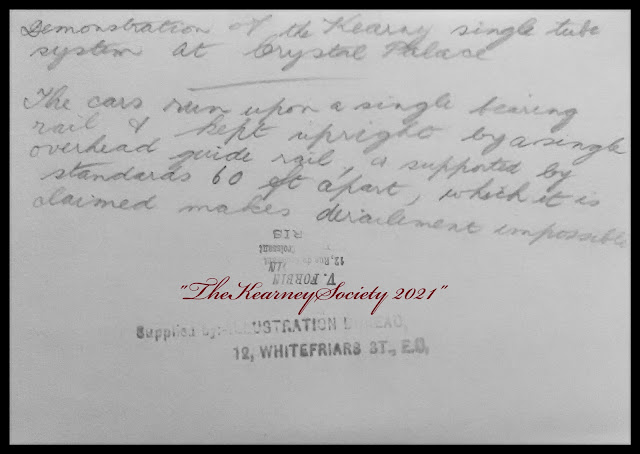 Demonstration of the Kearny single tube
system at Crystal Palace
The cars run upon a single bearing
rail & kept upright by a single
overhead guide rail, a supported by
standards 60 ft apart, which it is
claimed makes derailement impossible
V. FORBIN
12, Rue
Croissant
RIS
"TheKearneySociety 2021"
Supplied by:-ILLUSTRATION BUREAU,
12, WHITEFRIARS ST., E.C,